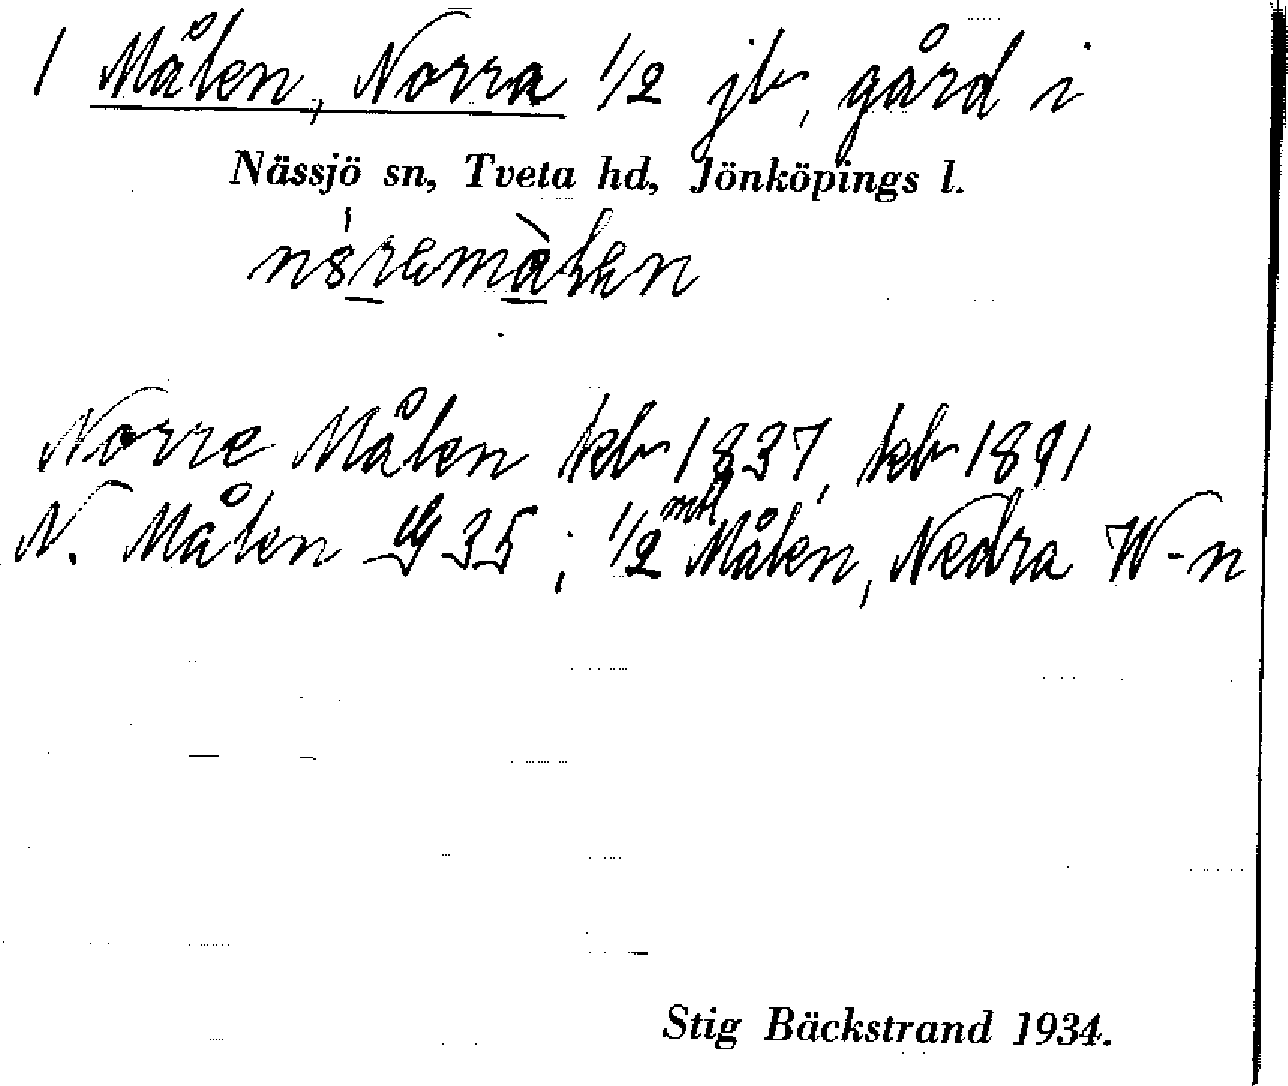 1 Målen, Norra 1/2 jb, gård i
Nässjö sn, Tveta hd, Jönköpings l.
Norre Målen kb 1837, kb 1891
N. Målen G 35; 1/2 mtl Målen, Nedra W-n
Stig Bäckstrand 1934.